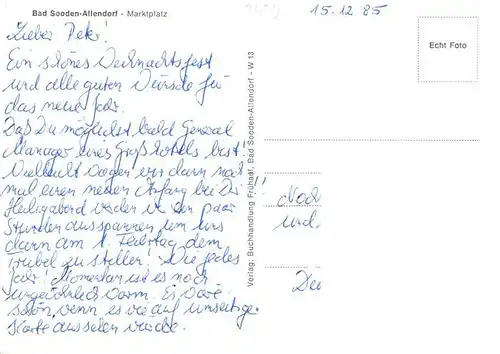 Bad Sooden-Allendorf - Marktplatz
15.12.85
Echt Foto
Lieber Peter!
Ein schönes Weihnachtsfest
und alle guten Wünsche für
das neue Jahr.
Daß Du möglichst bald General
Manager eines Großhotels bist!
Vielleicht wagen wir dann noch
mal einen neuen Anfang bei Dir!!
Heiligabend werden wir ein paar
Stunden ausspannen um uns
dann am 1. Feiertag dem
Trubel zu stellen! Wie jedes
Jahr! Momentan ist es noch
ungewöhnlich warm. Es wäre
schön, wenn es wie auf unserer
Karte aussehen würde.
Verlag: Buchhandlung Frühauf, Bad Sooden-Allendorf - W 13
Noch
und